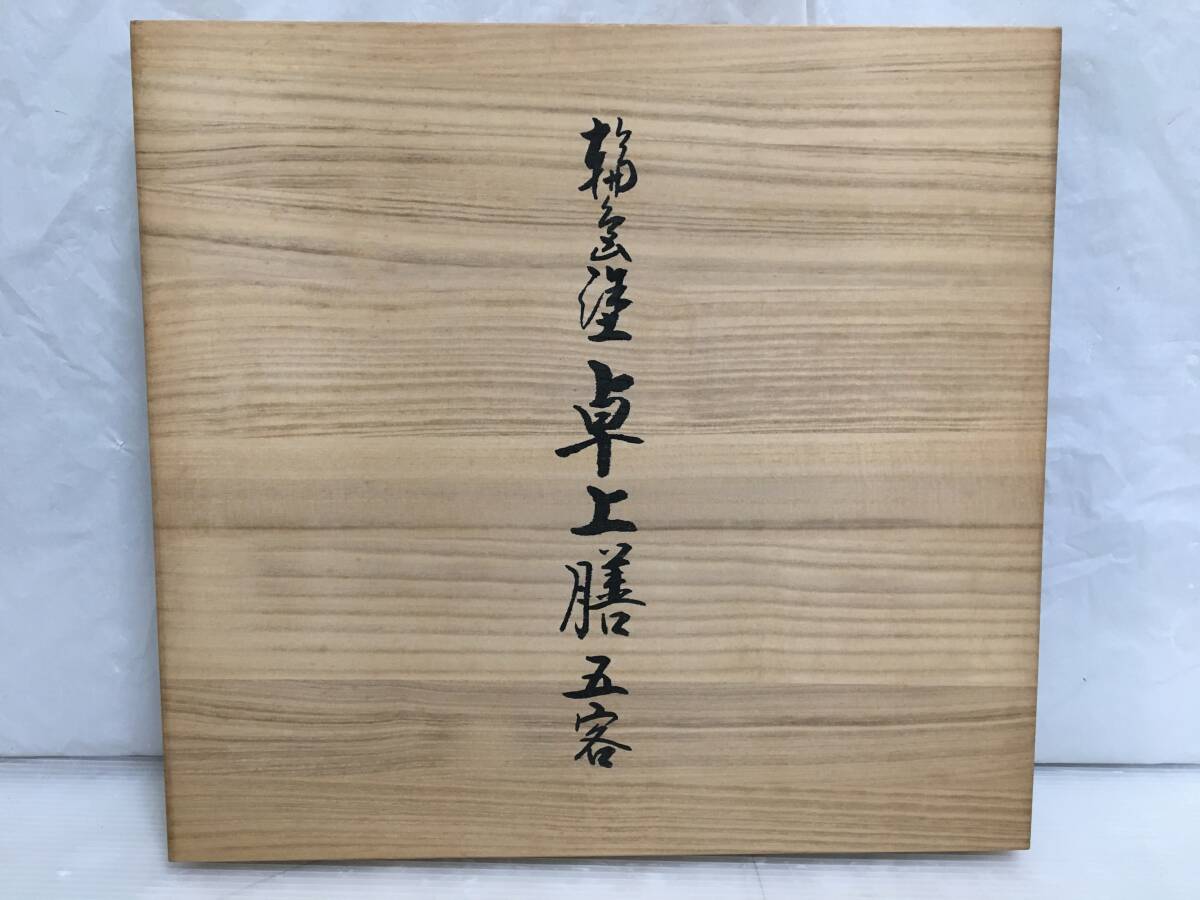 輪島塗卓上膳五客